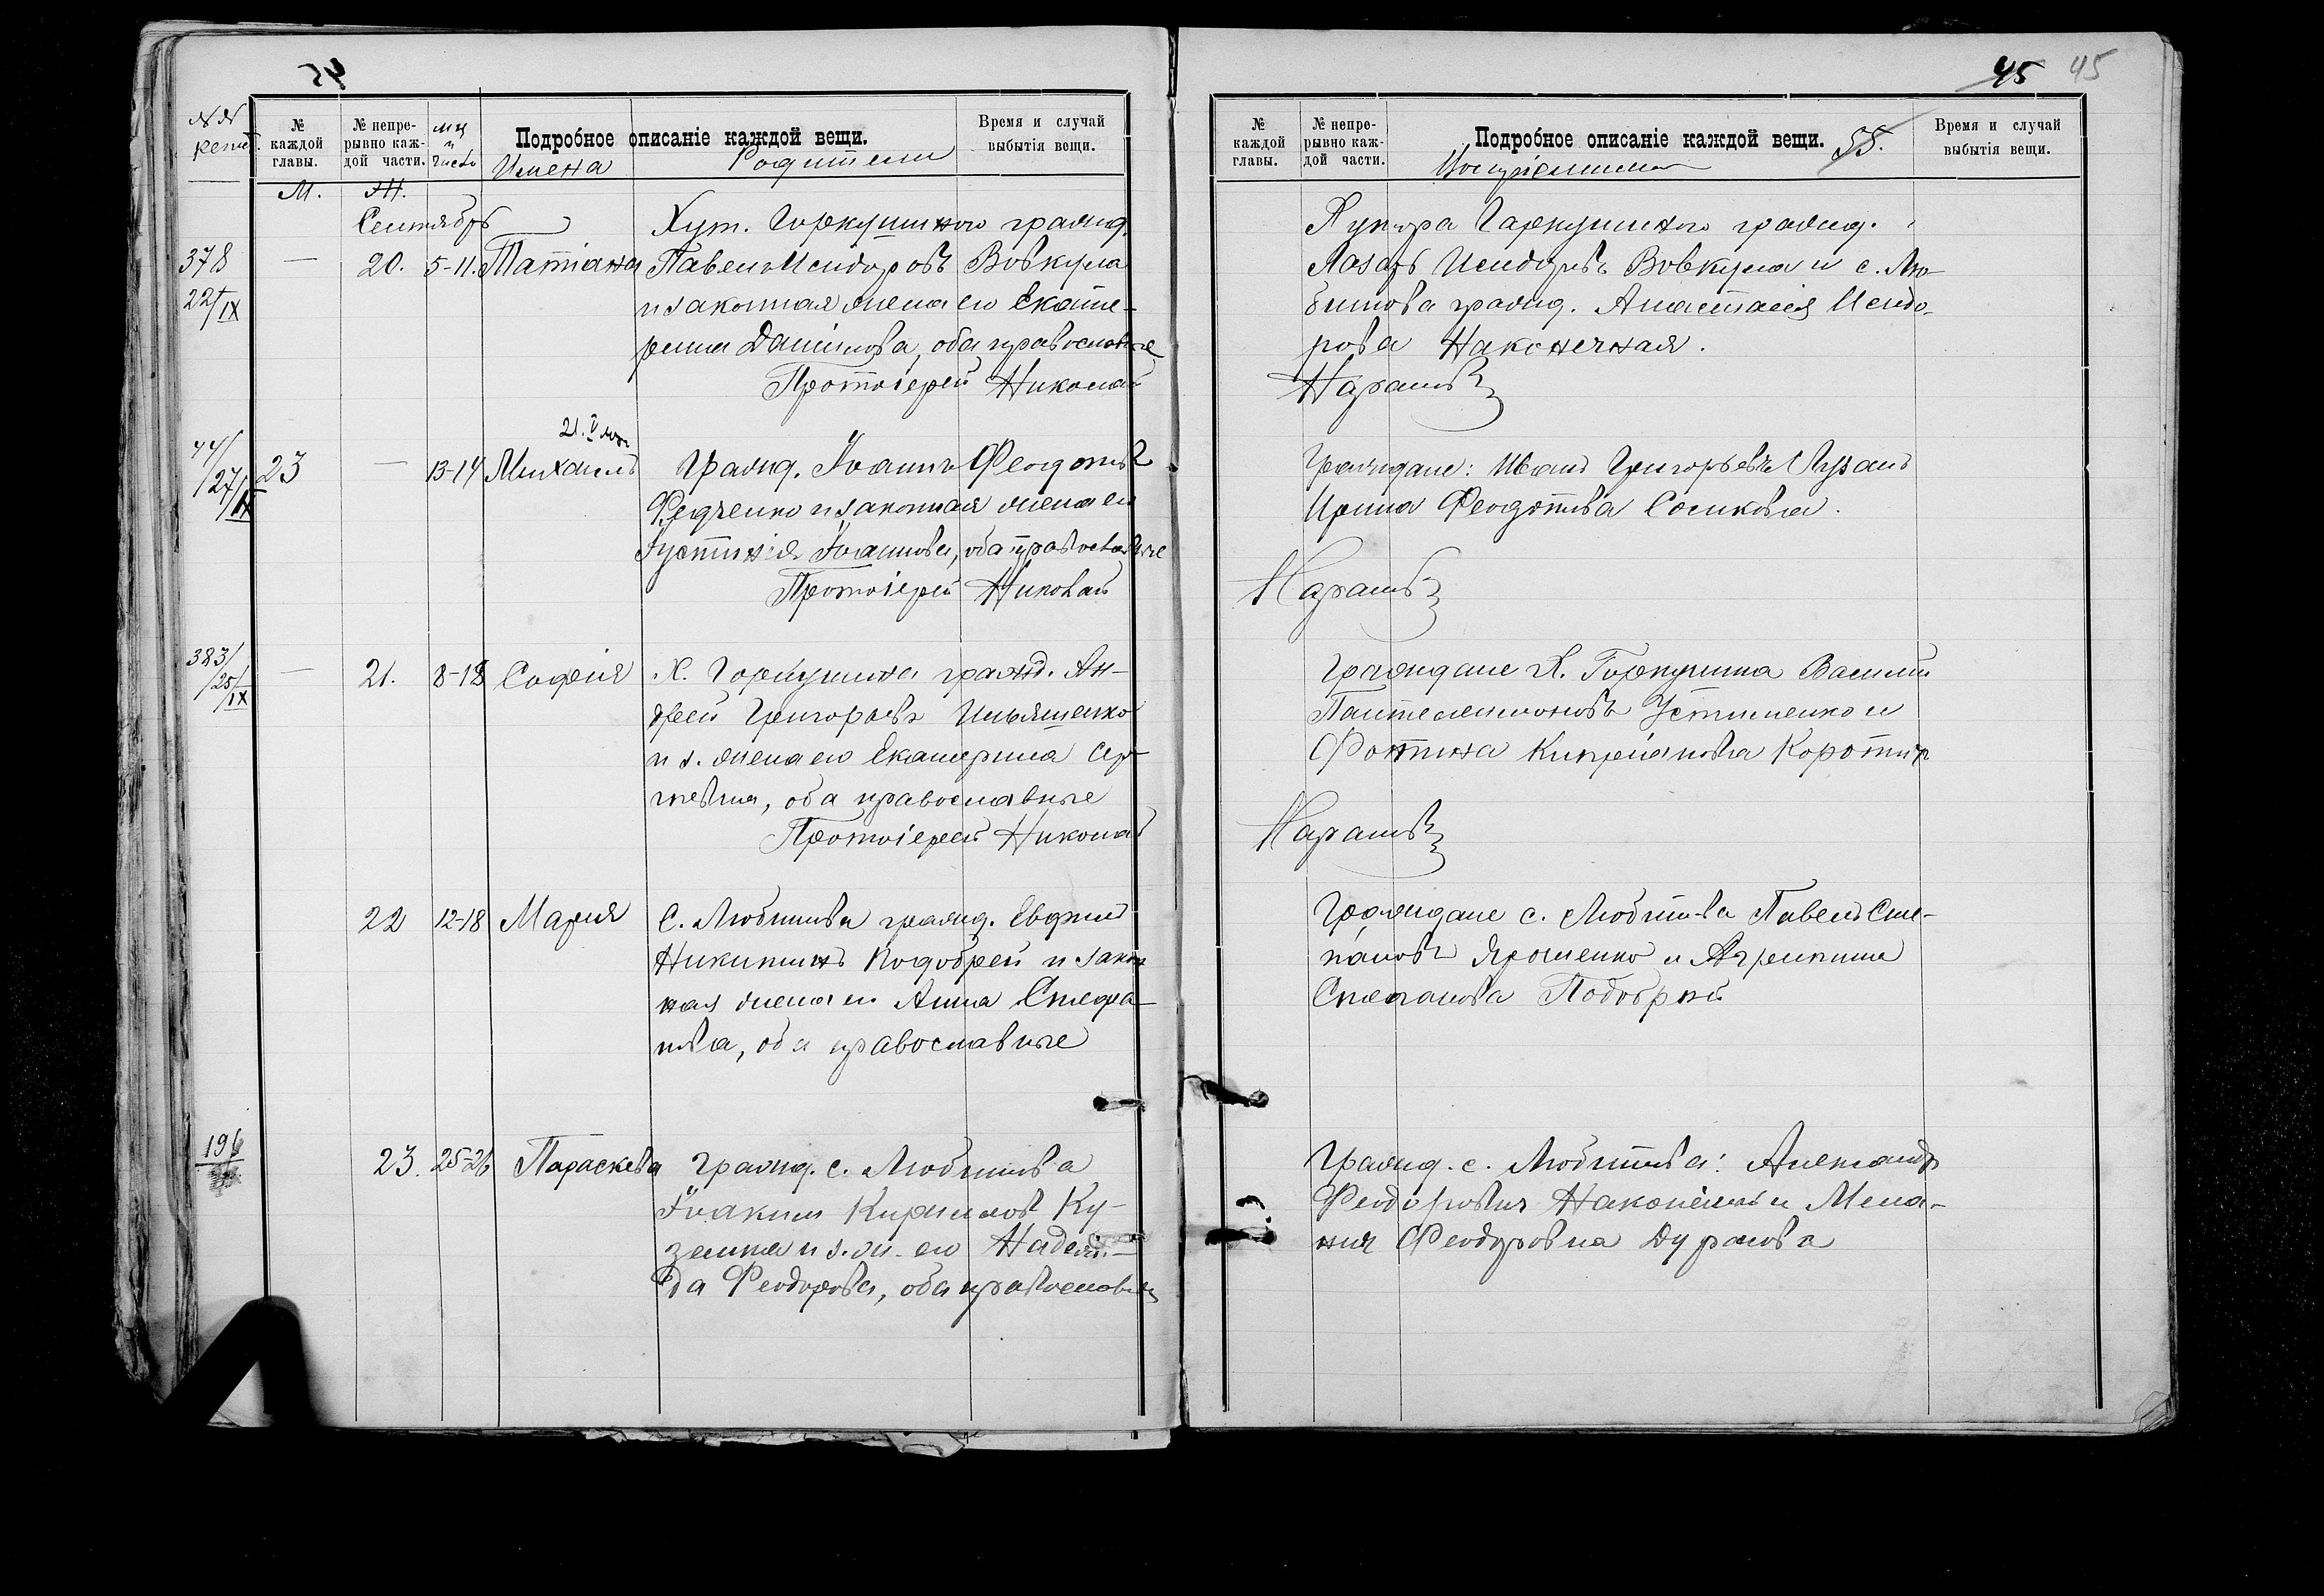 54
№№
№ каждой главы.
№ непрерывно каждой части.
мц и число
Подробное описаніе каждой вещи.
Время и случай выбытія вещи.
Имена
Родители
М. Ж.
Сентябрь
Хут. Гаркушина гражд.
378 — 20. 5-11. Татіана Павелъ Исидоровъ Вовкула
22/IX и законная жена его Екате-
рина Даніилова, оба православные
Протоіерей Николай
21. V
44/27/IX 23 — 13-14 Михаилъ Гражд. Іоаннъ Феодотовъ
Федченко и законная жена его
Іустинія Іоаннова, оба православные
Протоіерей Николай
383/25/IX — 21. 8-18 Софія Х. Гаркушина гражд. Ан-
дрей Григорьевъ Ильяшенко
и з. жена его Екатерина Сер-
гіевна, оба православные
Протоіерей Николай
22 12-18 Марія С. Любимовка гражд. Евфимій
Никитинъ Подобрей и закон
ная жена его Анна Стефа-
нова, оба православные
196 23. 25-26 Параскева гражд. с. Любимовка
Іоакимъ Кириловъ Ку-
земка и з. ж. его Надеж-
да Феодорова, оба православные
45 45
№ каждой главы.
№ непрерывно каждой части.
Подробное описаніе каждой вещи. 55.
Время и случай выбытія вещи.
Воспріемники
Хутора Гаркушина гражд.
Лазарь Исидоровъ Вовкула и с. Лю-
бимовка гражд. Анастасія Исидо-
рова Наконечная.
Граждане: Иванъ Григорьевичъ Лузанъ
Ирина Феодотова Сосиковна.
Граждане Х. Гаркушина Василій
Пантелеимоновъ Устименко и
Фотина Кипріановна
Граждане с. Любимовка Павелъ Сте-
пановъ Ярошенко и Агрипина
Степанова Подобрий
Гражд. с. Любимовка: Александръ
Феодоровичъ Наконечный и Мела-
нія Феодоровна Дуранова